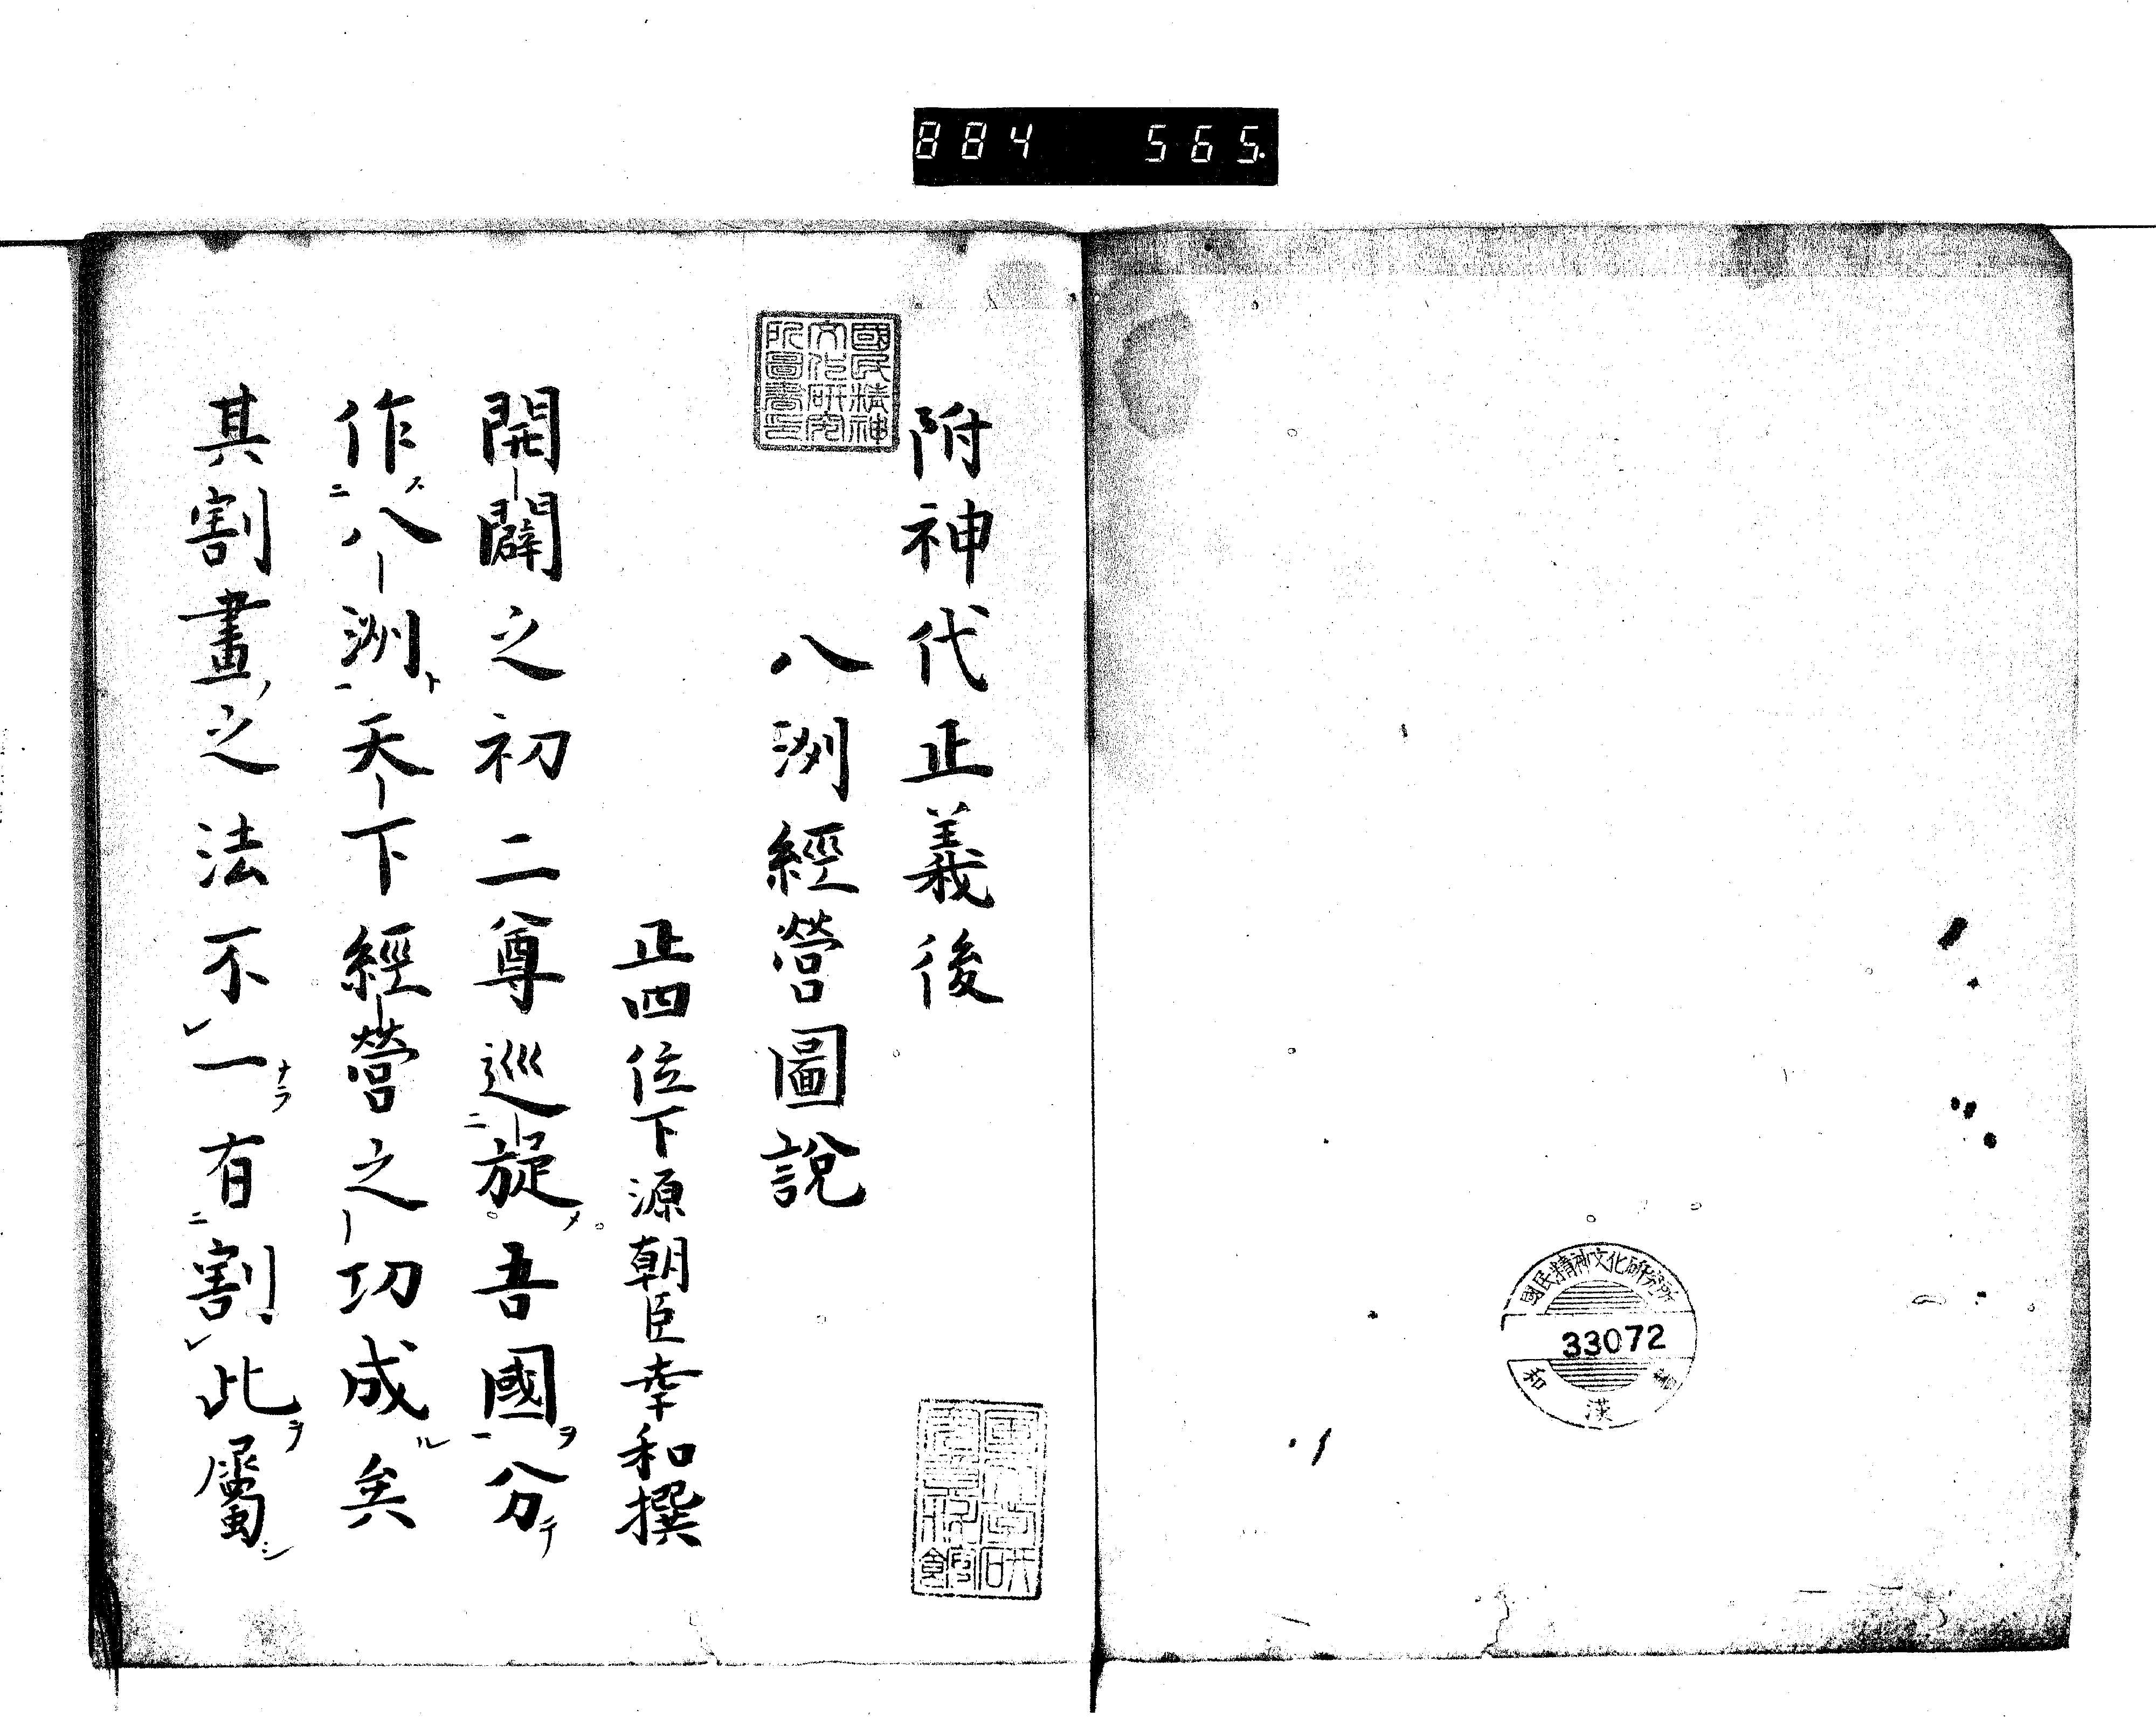 884 565.
附神代正義後
八洲經營圖說
正四位下源朝臣幸和撰
開闢之初二尊巡旋メ吾國ヲ分テ
作ス八洲ト天下經營之功成ル矣
其割畫ノ之法不一ナラ有割此ヲ屬シ
國民精神
文化研究
所圖書印
國民精神文化研究所
33072
和漢書